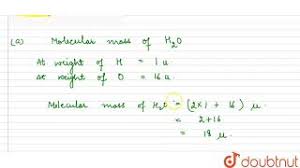 (a) Molecular mass of H₂O
At weight of H = 1 u
at weight of O = 16 u
Molecular mass of H₂O = (2×1 + 16) u.
= 2+16
= 18 u.
doubtnut